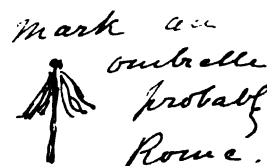 Mark an
ombrelle
probably
Rome.